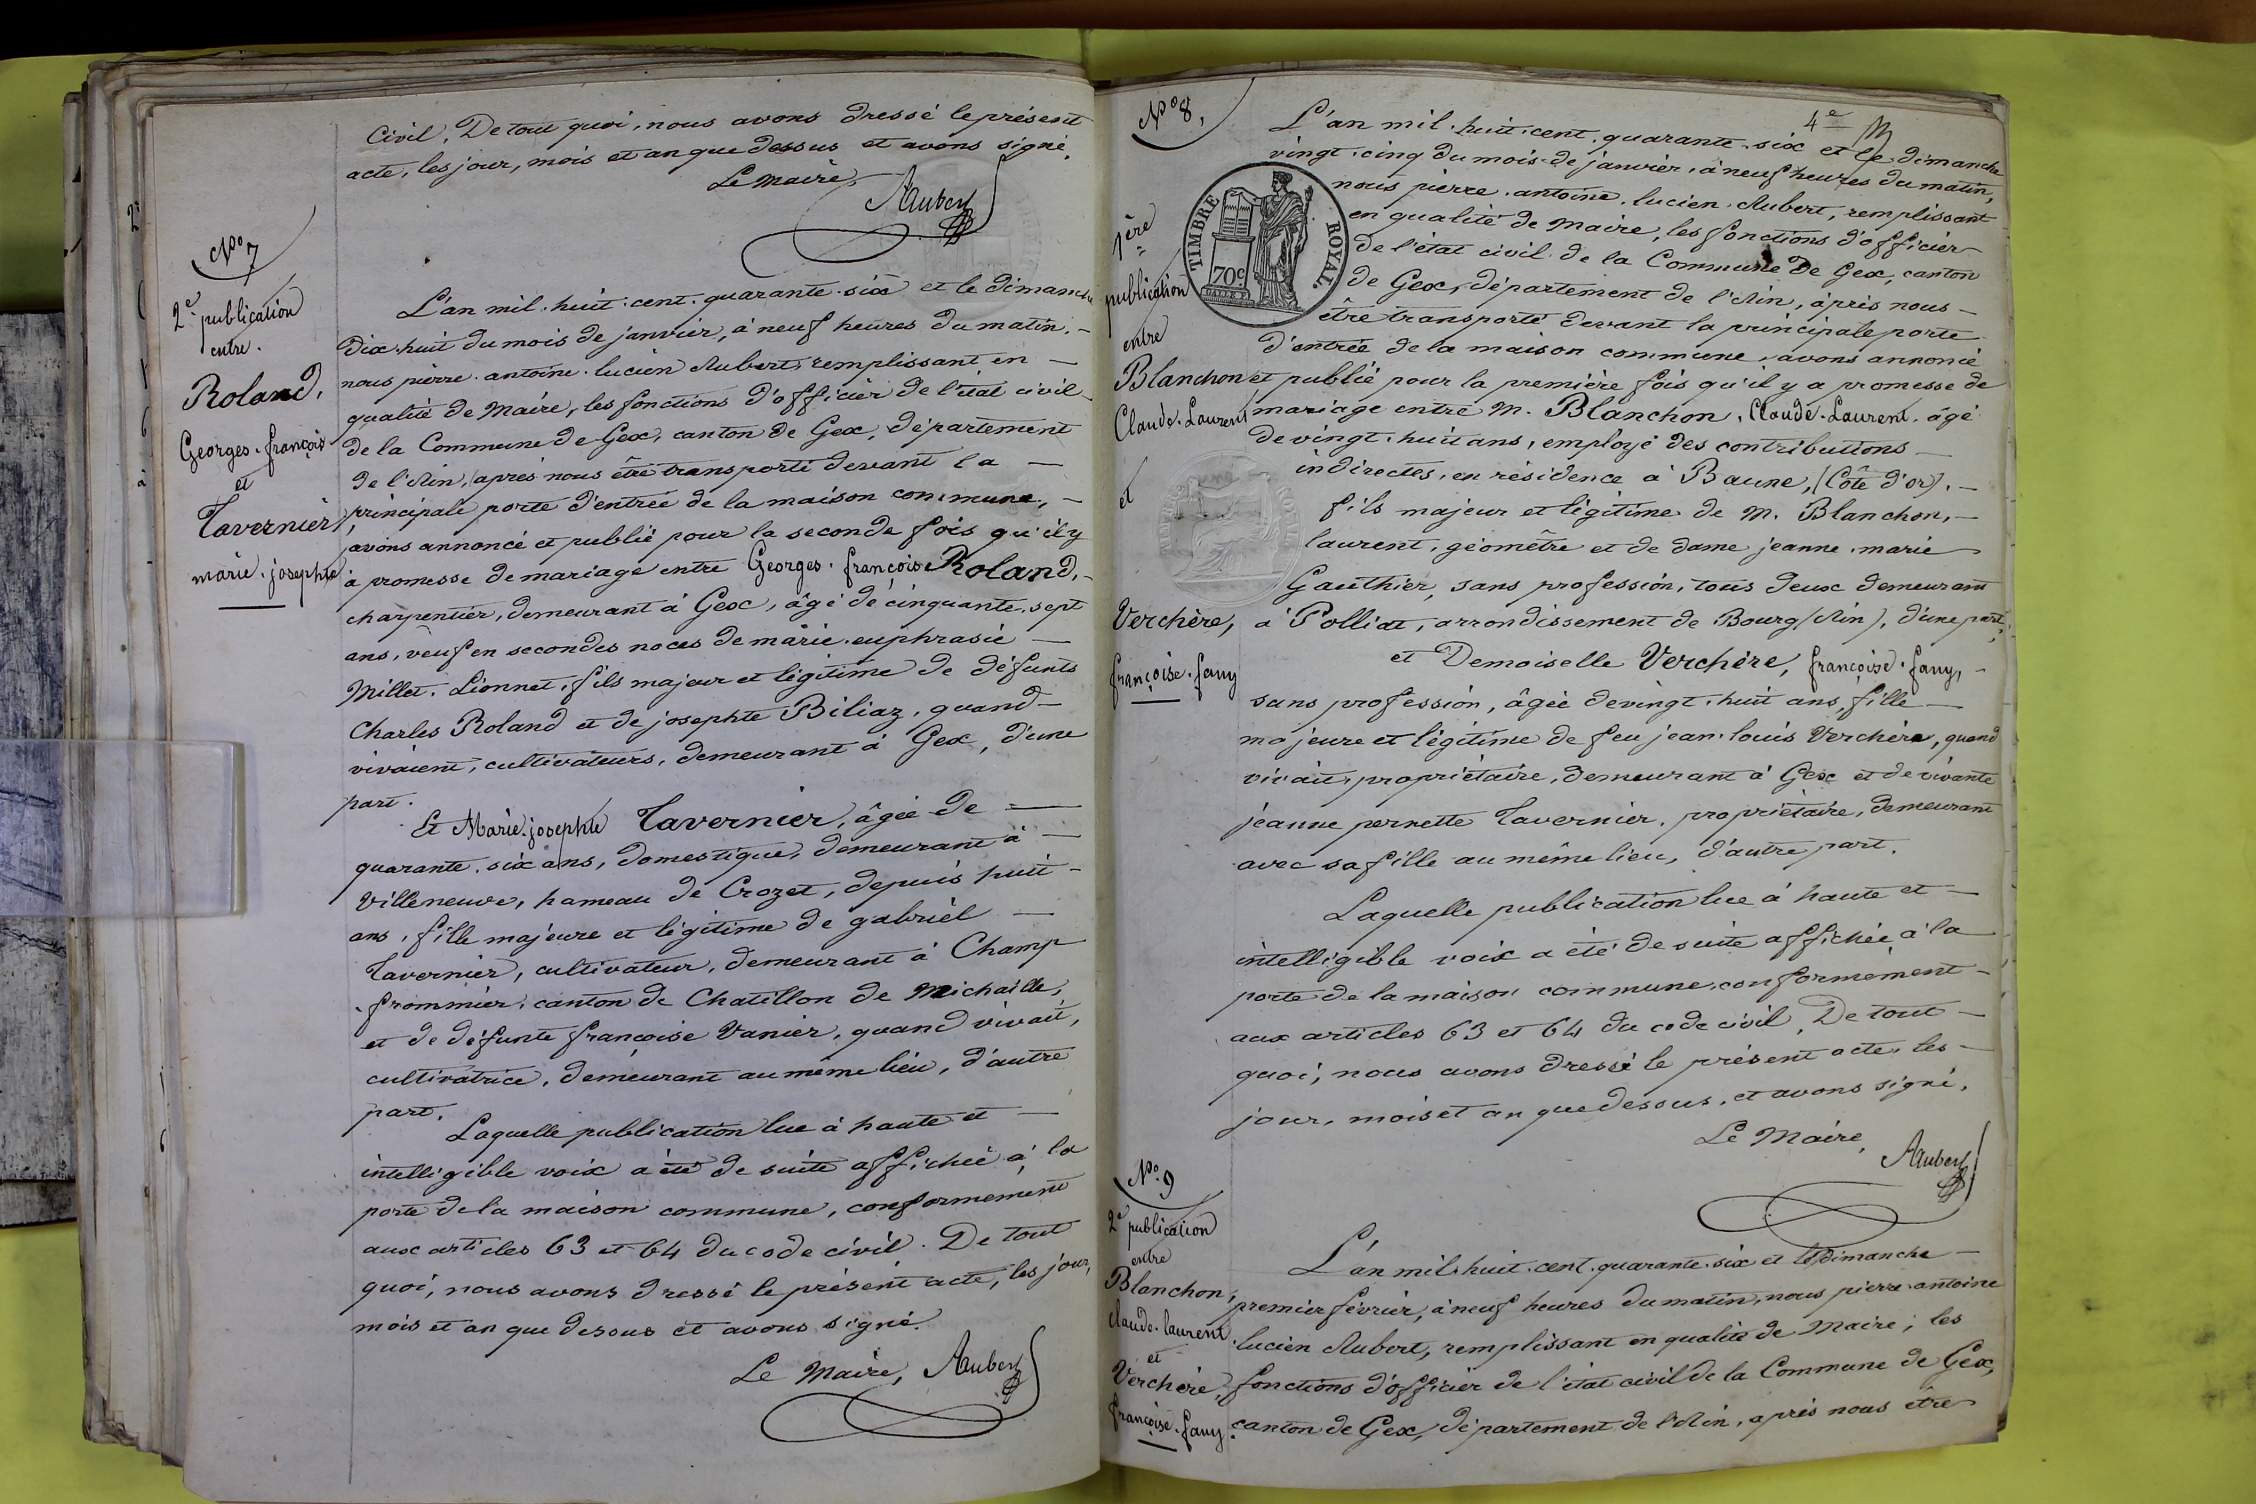 civil. De tout quoi, nous avons dressé le présent
acte, les jour, mois et an que dessus et avons signé.
Le Maire,
Aubert
N.o 7
2.e publication
entre.
Roland,
Georges-françois
et
Tavernier,
marie-josephte
L'an mil-huit-cent-quarante-six et le dimanche
dix-huit du mois de janvier, à neuf heures du matin,-
nous pierre-antoine-lucien Aubert, remplissant en —
qualité de Maire, les fonctions d'officier de l'état civil
de la Commune de Gex, canton de Gex, département
de l'Ain, après nous être transporté devant la —
principale porte d'entrée de la maison commune, —
avons annoncé et publié pour la seconde fois qu'il y
a promesse de mariage entre Georges-françois Roland,-
charpentier, demeurant à Gex, âgé de cinquante-sept
ans, veuf en secondes noces de marie-euphrasie —
Millet-Lionnet, fils majeur et légitime de défunts
Charles Roland et de josephte Biliaz, quand-
vivaient, cultivateurs, demeurant à Gex, d'une
part.
Et Marie-josephte Tavernier, âgée de —
quarante-six ans, domestique, demeurant à —
Villeneuve, hameau de Crozet, depuis huit-
ans, fille majeure et légitime de gabriel —
Tavernier, cultivateur, demeurant à Champ
-frommier, canton de Chatillon de Michaille,
et de défunte françoise Vanier, quand vivait,
cultivatrice, demeurant au même lieu, d'autre
part.
Laquelle publication lue à haute et —
intelligible voix a été de suite affichée à la
porte de la maison commune, conformement
aux articles 63 et 64 du code civil. De tout
quoi, nous avons dressé le présent acte, les jour,
mois et an que dessus et avons signé.
Le Maire, Aubert
4e
N.o 8,
1ère
publication
entre
Blanchon
Claude-Laurent
et
Verchère,
françoise-fany
TIMBRE ROYAL.
70c.
L'an mil-huit-cent-quarante-six et le dimanche
vingt-cinq du mois de janvier, à neuf heures du matin,
nous pierre-antoine-lucien-Aubert, remplissant
en qualité de Maire, les fonctions d'officier
de l'état civil de la Commune De Gex, canton
de Gex, département de l'Ain, après nous —
être transporté devant la principale porte
d'entrée de la maison commune, avons annoncé
et publié pour la première fois qu'il y a promesse de
mariage entre M. Blanchon, Claude-Laurent, âgé
de vingt-huit ans, employé des contributions —
indirectes, en résidence à Baune, (Côte d'or), —
fils majeur et légitime de M. Blanchon, —
laurent, géomètre et de dame jeanne-marie
Gauthier, sans profession, tous deux demeurant
à Polliat, arrondissement de Bourg (Ain), d'une part;
et Demoiselle Verchère, françoise-fany, —
sans profession, âgée de vingt-huit ans, fille —
majeure et légitime de feu jean-louis Verchère, quand
vivait, propriétaire, demeurant à Gex et de vivante
jeanne pernette Tavernier, propriétaire, demeurant
avec sa fille au même lieu, d'autre part.
Laquelle publication lue à haute et —
intelligible voix a été de suite affichée à la
porte de la maison commune, conformément —
aux articles 63 et 64 du code civil. De tout —
quoi, nous avons dressé le présent acte, les —
jour, mois et an que dessus, et avons signé.
Le Maire, Aubert
N.o 9
2e publication
entre
Blanchon,
claude-laurent
et
Verchère,
françoise-fany.
L'an mil-huit-cent-quarante-six et le dimanche —
premier février, à neuf heures du matin, nous pierre-antoine
lucien Aubert, remplissant en qualité de Maire, les
fonctions d'officier de l'état civil de la Commune de Gex,
canton de Gex, département de l'Ain, après nous être